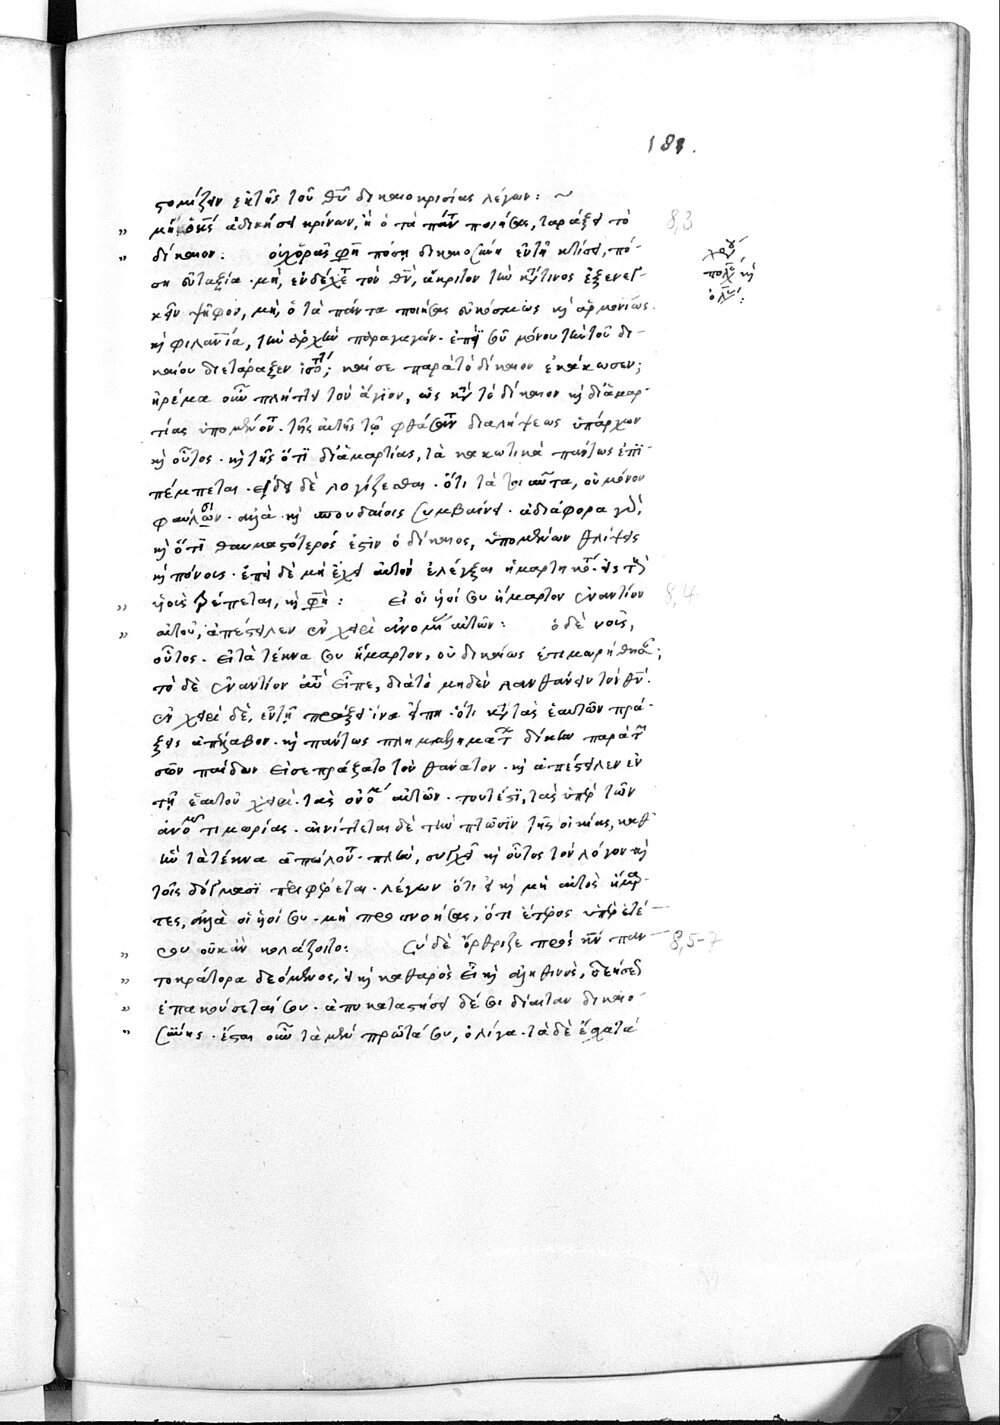 181.
στομίζειν ἐκ τῆς τοῦ θῦ δικαιοκρισίας λέγων: ~
μὴ ὁ κς ἀδικήσει κρίνων, ἢ ὁ τὰ πάντα ποιήσας, ταράξει τὸ 8,3
δίκαιον: οὐχ ὁρᾷς φη πόση δικαιοσύνη ἐν τῇ κτίσει, πό-
ση εὐταξία · μὴ, ἐνδέχεται τὸν θν, ἄκριτον τὴν κατά τινος ἐξενεγ-
κεῖν ψῆφον, μὴ, ὁ τὰ πάντα ποιήσας εὐκόσμως κὴ ἁρμονίως
κὴ φιλανία, τὴν ἀρχὴν παραγαγών · ἐπὶ σοῦ μόνου τὴν τοῦ δι-
καίου διετάραξεν ἰσότητα; καί σε παρὰ τὸ δίκαιον ἐκάκωσεν;
ἠρέμα οὖν πλήττει τὸν ἅγιον, ὡς κατὰ τὸ δίκαιον κὴ διὰ ἁμαρ-
τίας ὑπομένοντα · τῆς αὐτῆς τῷ φθάσαντι διαλήψεως ὑπάρχων
κὴ οὗτος · κὴ τῆς ὅτι διὰ ἁμαρτίας, τὰ κακωτικὰ πάντως ἐπι-
πέμπεται · ἔδει δὲ λογίζεσθαι · ὅτι τὰ τοιαῦτα, οὐ μόνον
φαύλοις · ἀλλὰ κὴ σπουδαίοις συμβαίνει · ἀδιάφορα γὰρ,
κὴ ὅτι θαυμασότερός ἐστιν ὁ δίκαιος, ὑπομένων θλίψεις
κὴ πόνους · ἐπεὶ δὲ μὴ ἔχει αὐτὸν ἐλέγξαι ἡμαρτηκότα · εἰς τοὺς
υἱοὺς τρέπεται, κὴ φη: εἰ οἱ υἱοί σου ἥμαρτον ἐναντίον 8,4
αὐτοῦ, ἀπέστειλεν ἐν χειρὶ ἀνομίας αὐτῶν: ὁ δὲ νοῦς,
οὗτος · εἰ τὰ τέκνα σου ἥμαρτον, οὐ δικαίως ἐτιμωρήθησαν;
τὸ δὲ ἐναντίον αὐτοῦ εἶπε, διὰ τὸ μηδὲν λανθάνειν τὸν θν ·
ἐν χειρὶ δὲ, ἐν τῇ πράξει ἵνα εἴπῃ · ὅτι κατὰ τὰς ἑαυτῶν πρά-
ξεις ἀπέλαβον · κὴ πάντως πλημμελημάτων δίκην παρὰ τῶν
σῶν παίδων εἰσεπράξατο τὸν θάνατον · κὴ ἀπέστειλεν ἐν
τῇ ἑαυτοῦ χειρὶ · τὰς ἀνομίας αὐτῶν · τουτέστι, τὰς ὑπὲρ τῶν
ἀνομιῶν τιμωρίας · αἰνίττεται δὲ τὴν πτῶσιν τῆς οἰκίας, καθ'
ἣν τὰ τέκνα ἀπώλοντο · πλὴν, συγχεῖ κὴ οὗτος τὸν λόγον κὴ
τοῖς δόγμασι περιφέρεται · λέγων ὅτι εἰ κὴ μὴ αὐτὸς ἥμαρ-
τες, ἀλλὰ οἱ υἱοί σου · μὴ προσνοήσας, ὅτι ἕτερος ὑπὲρ ἑτέ-
ρου οὐκ ἂν κολάζοιτο: σὺ δὲ ὄρθριζε πρὸς κν παν- 8,5-7
τοκράτορα δεόμενος, εἰ κὴ καθαρὸς εἶ κὴ ἀληθινός, δεήσεώς
ἐπακούσεταί σου · ἀποκαταστήσει δέ σοι δίαιταν δικαιο-
σύνης · ἔσται οὖν τὰ μὲν πρῶτά σου, ὀλίγα · τὰ δὲ ἔσχατά